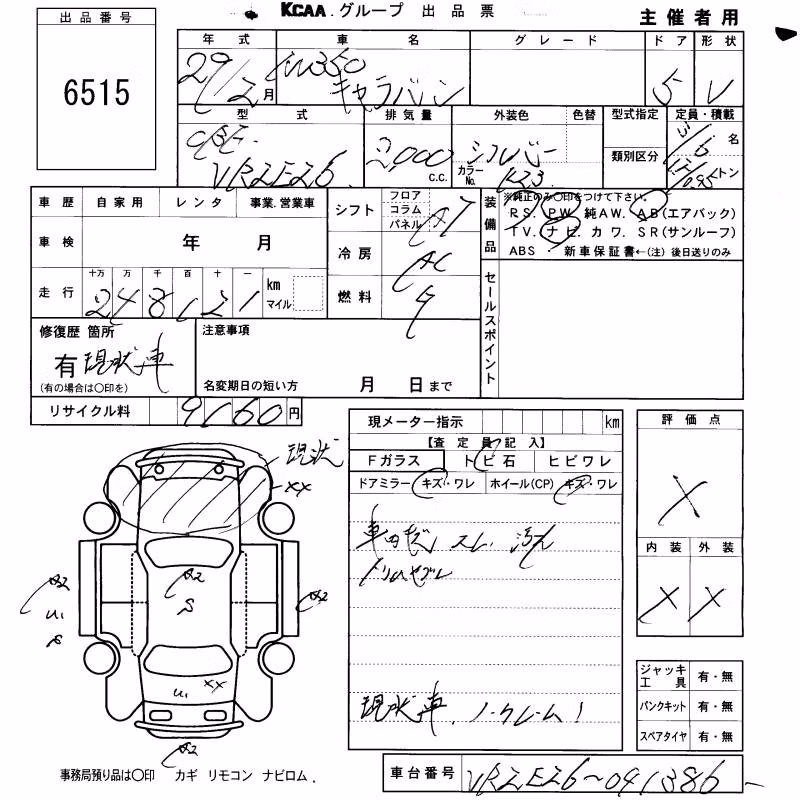 KCAA.グループ 出品票
主催者用
出品番号
6515
年式 車名 グレード ドア 形状
29/2月 NV350 キャラバン 5 V
型式 排気量 外装色 色替 型式指定 定員・積載
CBF- VR2E26 2,000 c.c. シルバー カラーNo. K23 類別区分 名 トン
車歴 自家用 レンタ 事業.営業車
車検 年 月
走行 十万 万 千 百 十 一
248121 km マイル
シフト フロア コラム パネル AT
冷房 AC
燃料 G
装備品 ※純正のみ〇印をつけて下さい。
P.S. P.W 純A.W. A.B(エアバック)
T.V. ナビ. カワ. S.R(サンルーフ)
A.B.S 新車保証書←(注)後日送りのみ
セールスポイント
修復歴 箇所
有 現状車
(有の場合は〇印を)
注意事項
名変期日の短い方 月 日まで
リサイクル料 9160円
現メーター指示 km
【査定員記入】
Fガラス トビ石 ヒビワレ
ドアミラー キズ・ワレ ホイール(CP) キズ・ワレ
車内キズ スレ 汚れ
トリムヤブレ
現状車. ノークレーム!
評価点
X
内装 外装
X X
現状
XX
A2
U1
S
A2
S
A2
XX
U1
A2
ジャッキ工具 有・無
パンクキット 有・無
スペアタイヤ 有・無
事務局預り品は〇印 カギ リモコン ナビロム.
車台番号 VR2E26-041386-